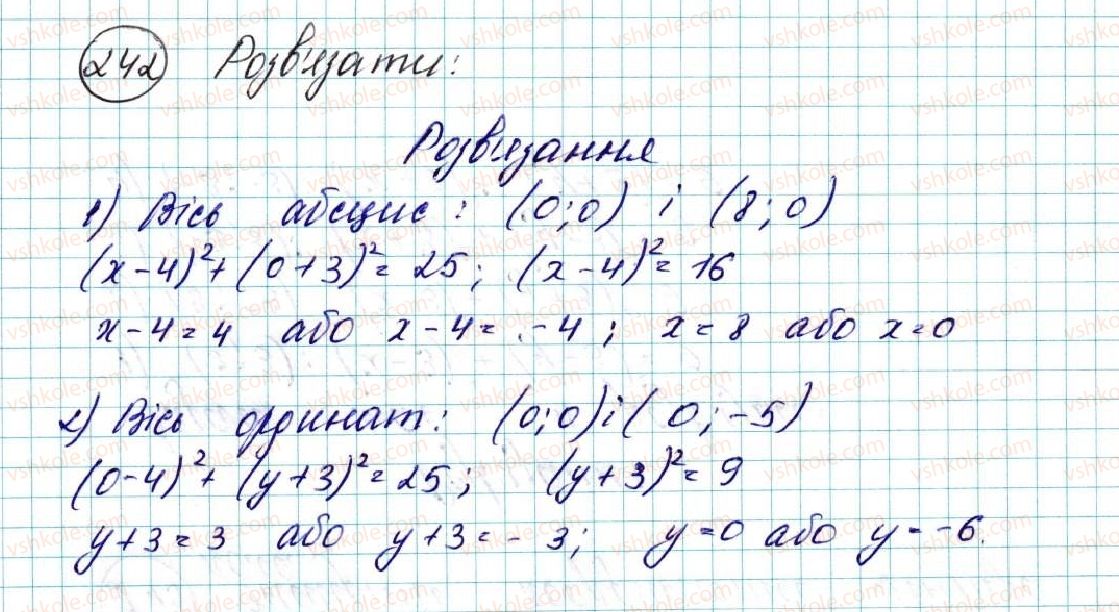 242 Розв'язати:
Розв'язання
1) Вісь абсцис: (0;0) і (8;0)
(x-4)²+(0+3)²=25; (x-4)²=16
x-4=4 або x-4=-4; x=8 або x=0
2) Вісь ординат: (0;0) і (0;-5)
(0-4)²+(y+3)²=25; (y+3)²=9
y+3=3 або y+3=-3; y=0 або y=-6.